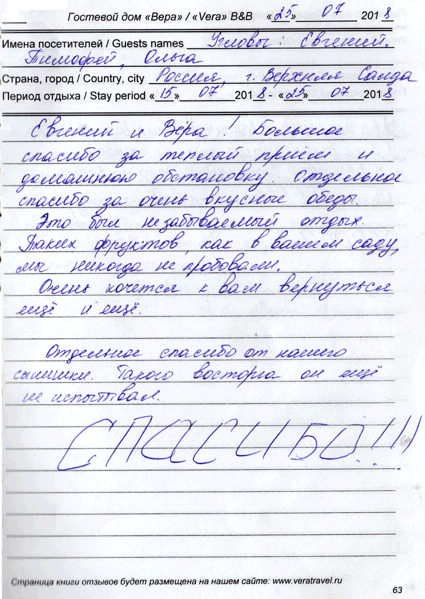 Гостевой дом «Вера» / «Vera» B&B «25» 07 2018
Имена посетителей / Guests names Угловы: Евгений,
Тимофей, Ольга
Страна, город / Country, city Россия, г. Верхняя Салда
Период отдыха / Stay period «15» 07 2018 - «25» 07 2018
Евгений и Вера! Большое
спасибо за теплый приём и
домашнюю обстановку. Отдельное
спасибо за очень вкусные обеды.
Это был незабываемый отдых.
Таких фруктов, как в вашем саду,
мы никогда не пробовали.
Очень хочется к вам вернуться
ещё и ещё.
Отдельное спасибо от нашего
сынишки. Такого восторга он ещё
не испытывал.
СПАСИБО!!!!
Страница книги отзывов будет размещена на нашем сайте: www.veratravel.ru
63